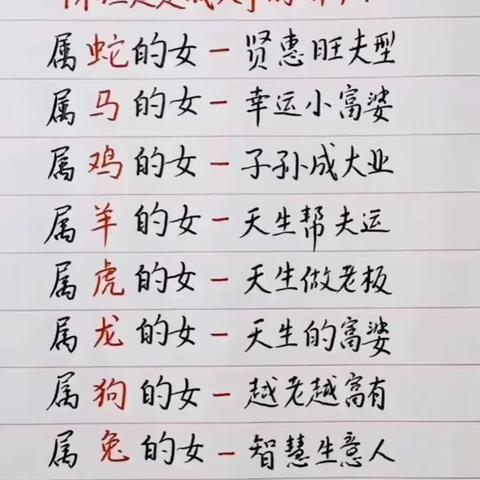 属蛇的女-贤惠旺夫型
属马的女-幸运小富婆
属鸡的女-子孙成大业
属羊的女-天生帮夫运
属虎的女-天生做老板
属龙的女-天生的富婆
属狗的女-越老越富有
属兔的女-智慧生意人